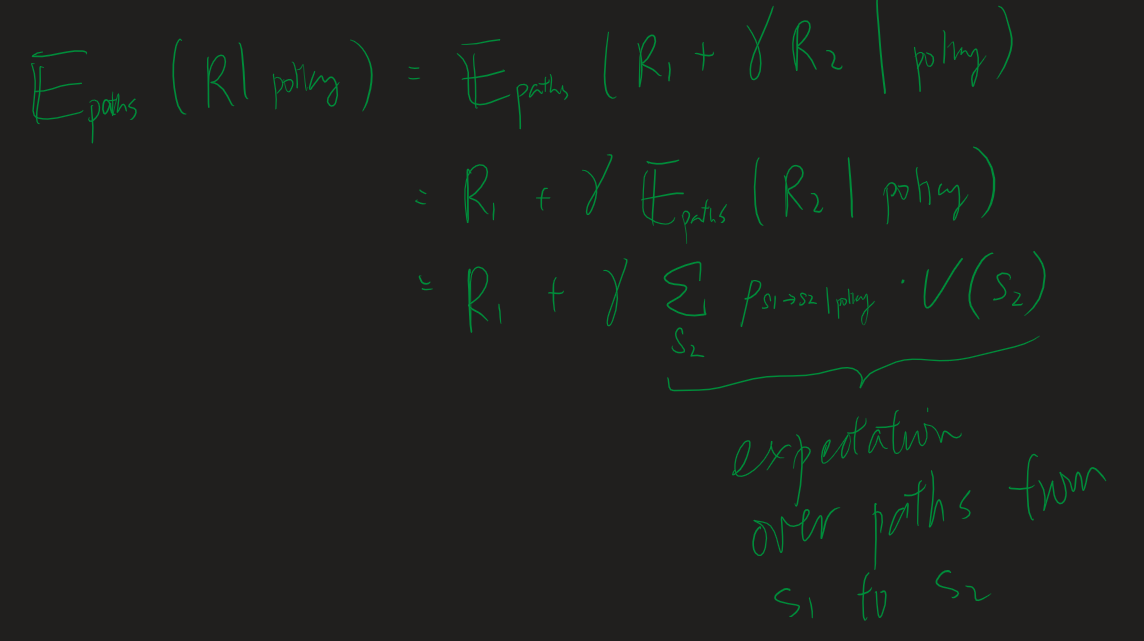 𝔼_paths (R | policy) = 𝔼_paths (R₁ + γ R₂ | policy)
= R₁ + γ 𝔼_paths (R₂ | policy)
= R₁ + γ Σ_{S₂} p_{S1→S2 | policy} · V(S₂)
expectation
over paths from
S₁ to S₂